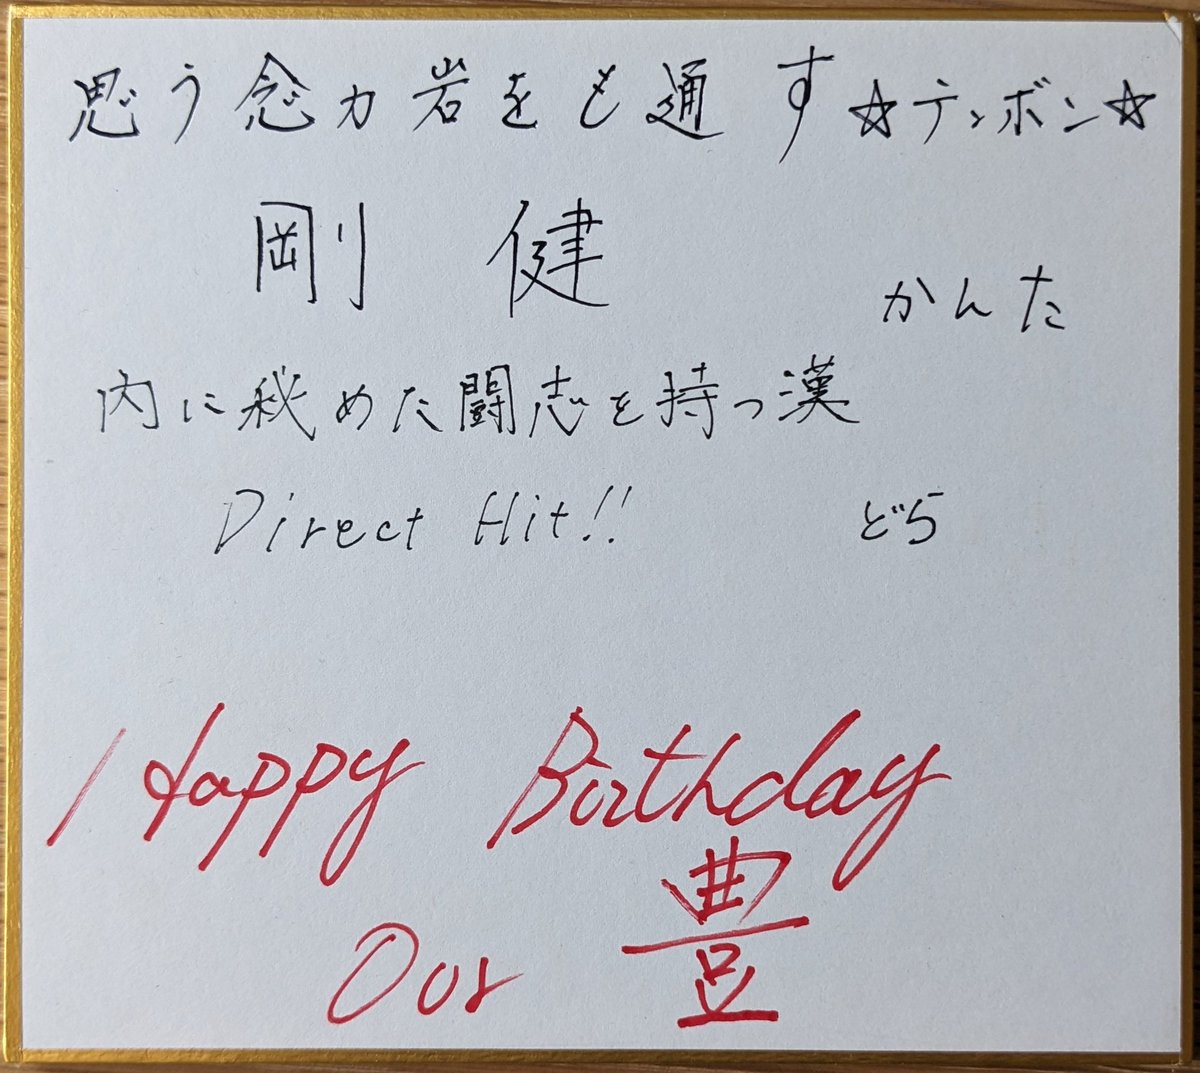 思う念力岩をも通す ☆テンボン☆
剛 健
かんた
内に秘めた闘志を持つ漢
Direct Hit!! どら
Happy Birthday
Our 豊